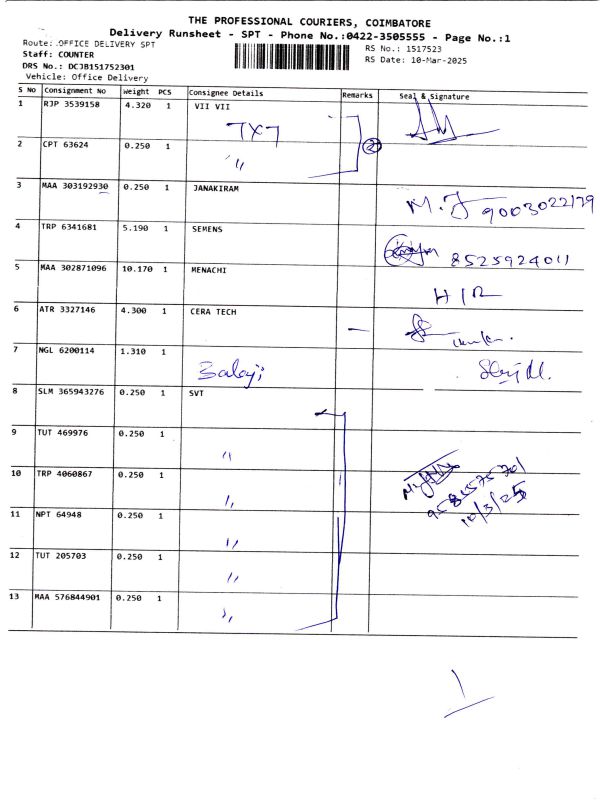 THE PROFESSIONAL COURIERS, COIMBATORE
Delivery Runsheet - SPT - Phone No.:0422-3505555 - Page No.:1
Route: OFFICE DELIVERY SPT
RS No.: 1517523
Staff: COUNTER
RS Date: 10-Mar-2025
DRS No.: DCJB151752301
Vehicle: Office Delivery
S No Consignment No Weight PCS Consignee Details Remarks Seal & Signature
1 RJP 3539158 4.320 1 VII VII
7X7
2 CPT 63624 0.250 1 〃 2
3 MAA 303192930 0.250 1 JANAKIRAM
9003022179
4 TRP 6341681 5.190 1 SEMENS
8525924011
5 MAA 302871096 10.170 1 MENACHI
6 ATR 3327146 4.300 1 CERA TECH —
7 NGL 6200114 1.310 1 Balaji
8 SLM 365943276 0.250 1 SVT
9 TUT 469976 0.250 1 〃
10 TRP 4060867 0.250 1 〃
10/3/25
11 NPT 64948 0.250 1 〃
12 TUT 205703 0.250 1 〃
13 MAA 576844901 0.250 1 〃